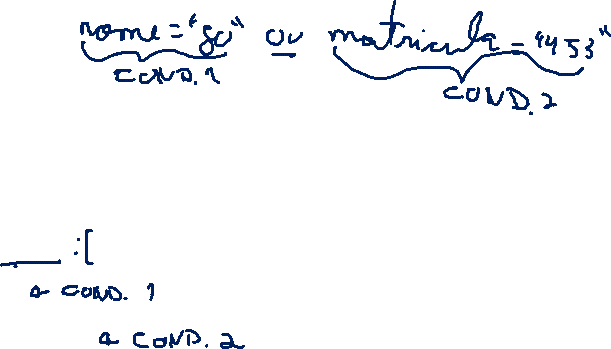 nome="go" ou matricula="453"
COND. 1
COND. 2
____ :[
COND. 1
COND. 2